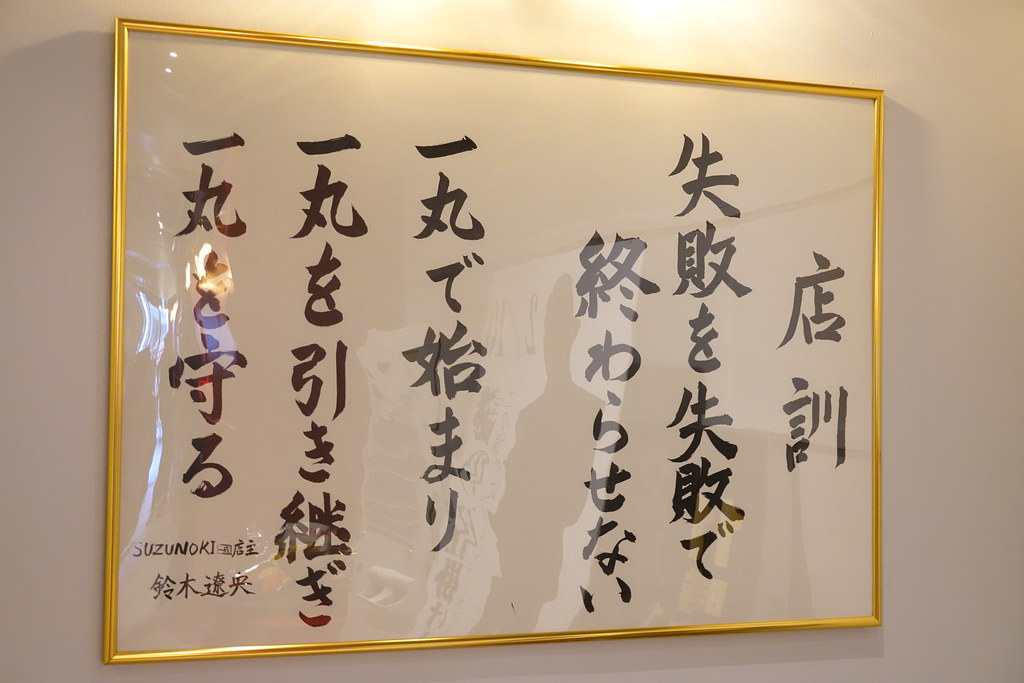 店訓
失敗を失敗で
終わらせない
一丸で始まり
一丸を引き継ぎ
一丸を守る
SUZUNOKI 店主
鈴木遼央